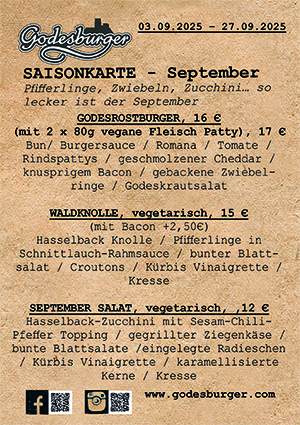 Godesburger
03.09.2025 - 27.09.2025
SAISONKARTE - September
Pfifferlinge, Zwiebeln, Zucchini… so
lecker ist der September
GODESROSTBURGER, 16 €
(mit 2 x 80g vegane Fleisch Patty), 17 €
Bun/ Burgersauce / Romana / Tomate /
Rindspattys / geschmolzener Cheddar /
knusprigem Bacon / gebackene Zwiebel-
ringe / Godeskrautsalat
WALDKNOLLE, vegetarisch, 15 €
(mit Bacon +2,50€)
Hasselback Knolle / Pfifferlinge in
Schnittlauch-Rahmsauce / bunter Blatt-
salat / Croutons / Kürbis Vinaigrette /
Kresse
SEPTEMBER SALAT, vegetarisch, ,12 €
Hasselback-Zucchini mit Sesam-Chili-
Pfeffer Topping / gegrillter Ziegenkäse /
bunte Blattsalate /eingelegte Radieschen
/ Kürbis Vinaigrette / karamellisierte
Kerne / Kresse
www.godesburger.com